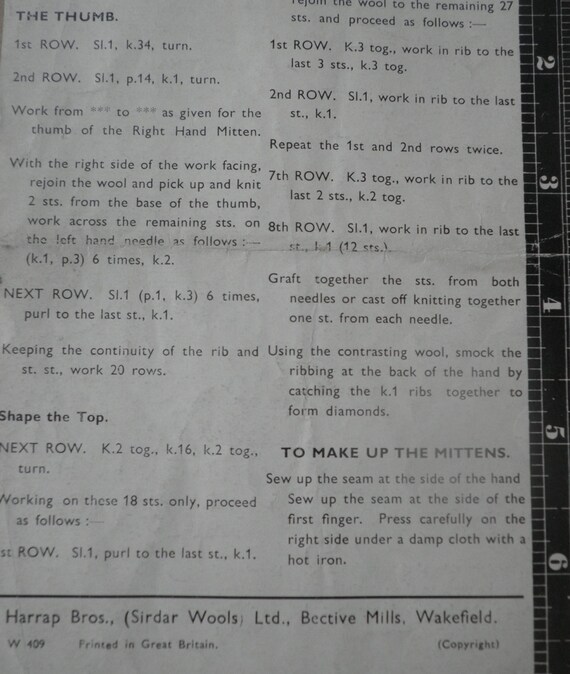 THE THUMB.
1st ROW. Sl.1, k.34, turn.
2nd ROW. Sl.1, p.14, k.1, turn.
Work from *** to *** as given for the
thumb of the Right Hand Mitten.
With the right side of the work facing,
rejoin the wool and pick up and knit
2 sts. from the base of the thumb,
work across the remaining sts. on
the left hand needle as follows :—
(k.1, p.3) 6 times, k.2.
NEXT ROW. Sl.1 (p.1, k.3) 6 times,
purl to the last st., k.1.
Keeping the continuity of the rib and
st. st., work 20 rows.
Shape the Top.
NEXT ROW. K.2 tog., k.16, k.2 tog.,
turn.
Working on these 18 sts. only, proceed
as follows :—
st ROW. Sl.1, purl to the last st., k.1.
rejoin the wool to the remaining 27
sts. and proceed as follows :—
1st ROW. K.3 tog., work in rib to the
last 3 sts., k.3 tog.
2nd ROW. Sl.1, work in rib to the last
st., k.1.
Repeat the 1st and 2nd rows twice.
7th ROW. K.3 tog., work in rib to the
last 2 sts., k.2 tog.
8th ROW. Sl.1, work in rib to the last
st., k.1 (12 sts.).
Graft together the sts. from both
needles or cast off knitting together
one st. from each needle.
Using the contrasting wool, smock the
ribbing at the back of the hand by
catching the k.1 ribs together to
form diamonds.
TO MAKE UP THE MITTENS.
Sew up the seam at the side of the hand
Sew up the seam at the side of the
first finger. Press carefully on the
right side under a damp cloth with a
hot iron.
Harrap Bros., (Sirdar Wools) Ltd., Bective Mills, Wakefield.
W 409 Printed in Great Britain. (Copyright)
2
3
4
5
6